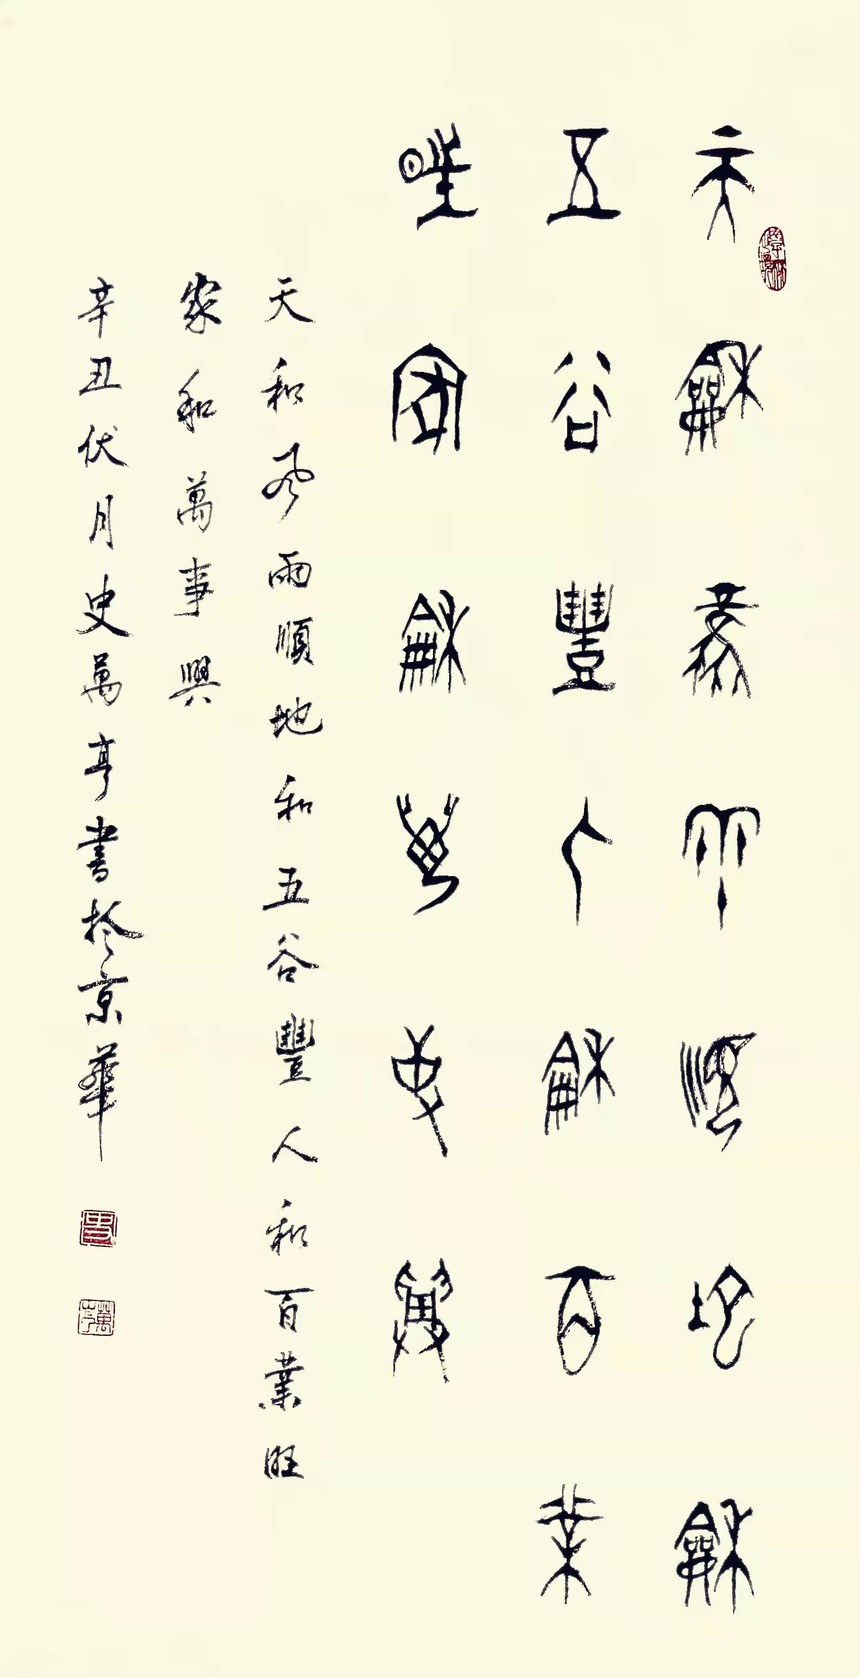 天龢風雨順地龢
五谷豐人龢百業
旺家龢萬事興
天和風雨順地和五谷豐人和百業旺
家和萬事興
辛丑伏月史萬亭書於京華